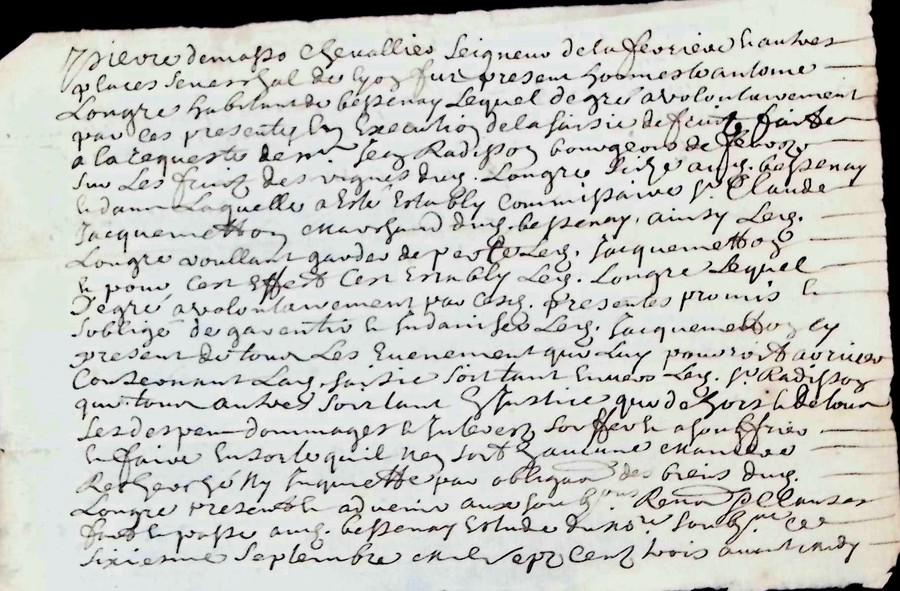 Pierre demasso Chevallier Seigneur de la ferriere & autres
places Seneschal de lyon fut present honneste antoine
Longre habitant de bessenay Lequel de gré a volontairement
par ces presentes En Execution de la saisie de fruitz faite
a la requeste de mr. Jean Radisson bourgeois de
sur Les fruitz des vignes dudq. Longre size audq. bessenay
& dans Laquelle a Esté Estably Commissaire Sr. Claude
Jacquemetton marchand dudq. bessenay, ainsy Ledq.
Longre voullant garder de perte Ledq. Jacquemetton
& pour Cest effect C'est Estably Ledq. Longre Lequel
De gré a volontairement par cesdq. presentes promis &
s'oblige de garentir & indamiser Ledq. Jacquemetton cy
present de tour Les Evenement qui Luy pourroit arriver
Consernant Ladq. saisie soit tant Envers Ledq. Sr. Radisson
que tour autres soit tant En Justice que dehors & de tour
Les despens dommages & Interest souffert a souffrir
& faire En sorte quil n'en soit En aucune maniere
Recherché Ny Inquietté par obligaon des biens dudq.
Longre present & advenir aux soubzons Renon & Clauses
fait & passé audq. bessenay Estude du No.re soubz.né ce
sixiesme Septembre mil sept Centz trois avant midy